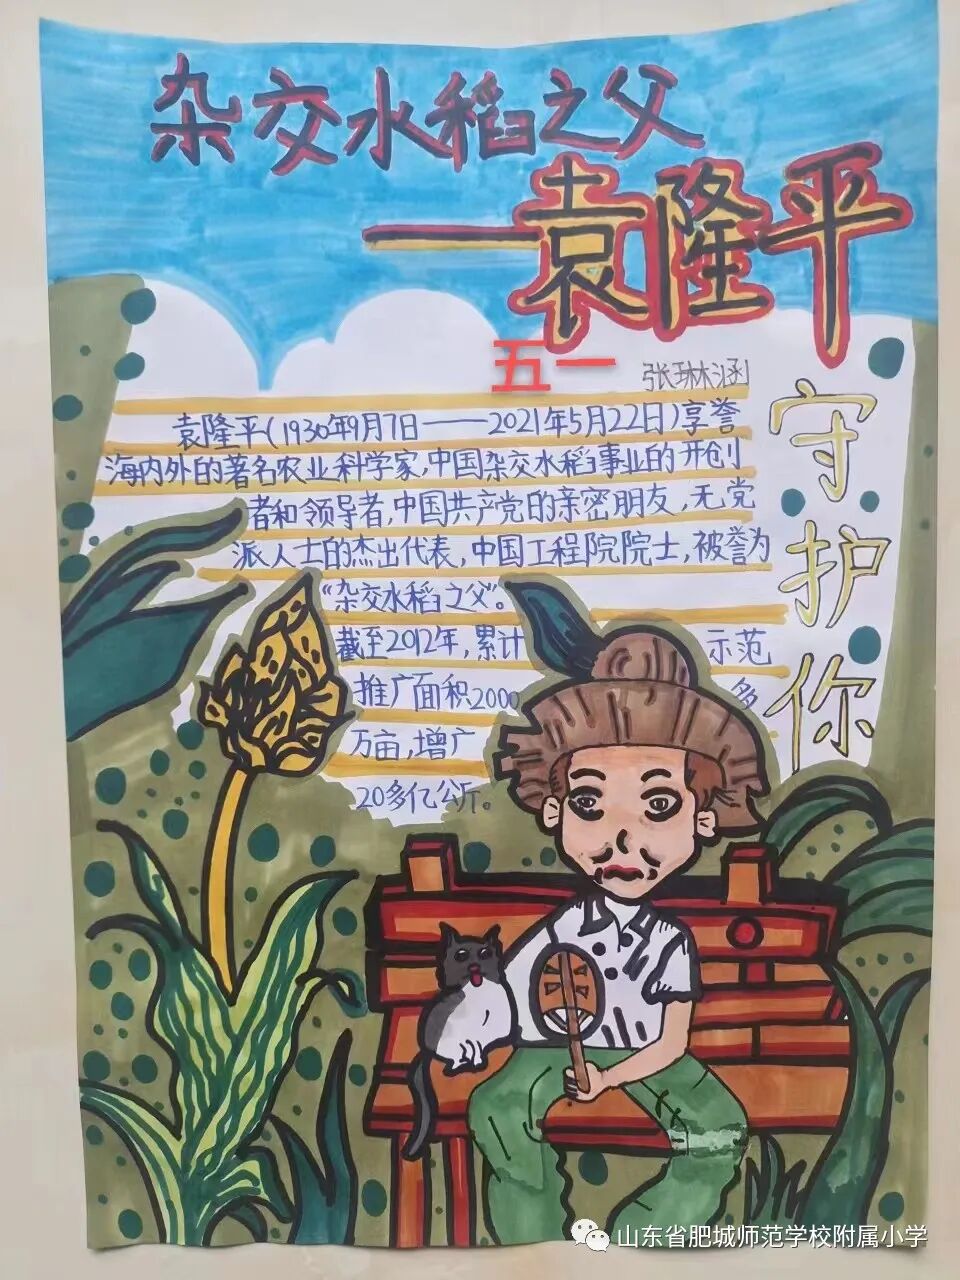 杂交水稻之父
——袁隆平
五一
张琳涵
袁隆平(1930年9月7日——2021年5月22日)享誉
海内外的著名农业科学家,中国杂交水稻事业的开创
者和领导者,中国共产党的亲密朋友,无党
派人士的杰出代表,中国工程院院士,被誉为
“杂交水稻之父”。
截至2012年,累计 示范
推广面积2000 多
万亩,增产
20多亿公斤。
守护你
山东省肥城师范学校附属小学